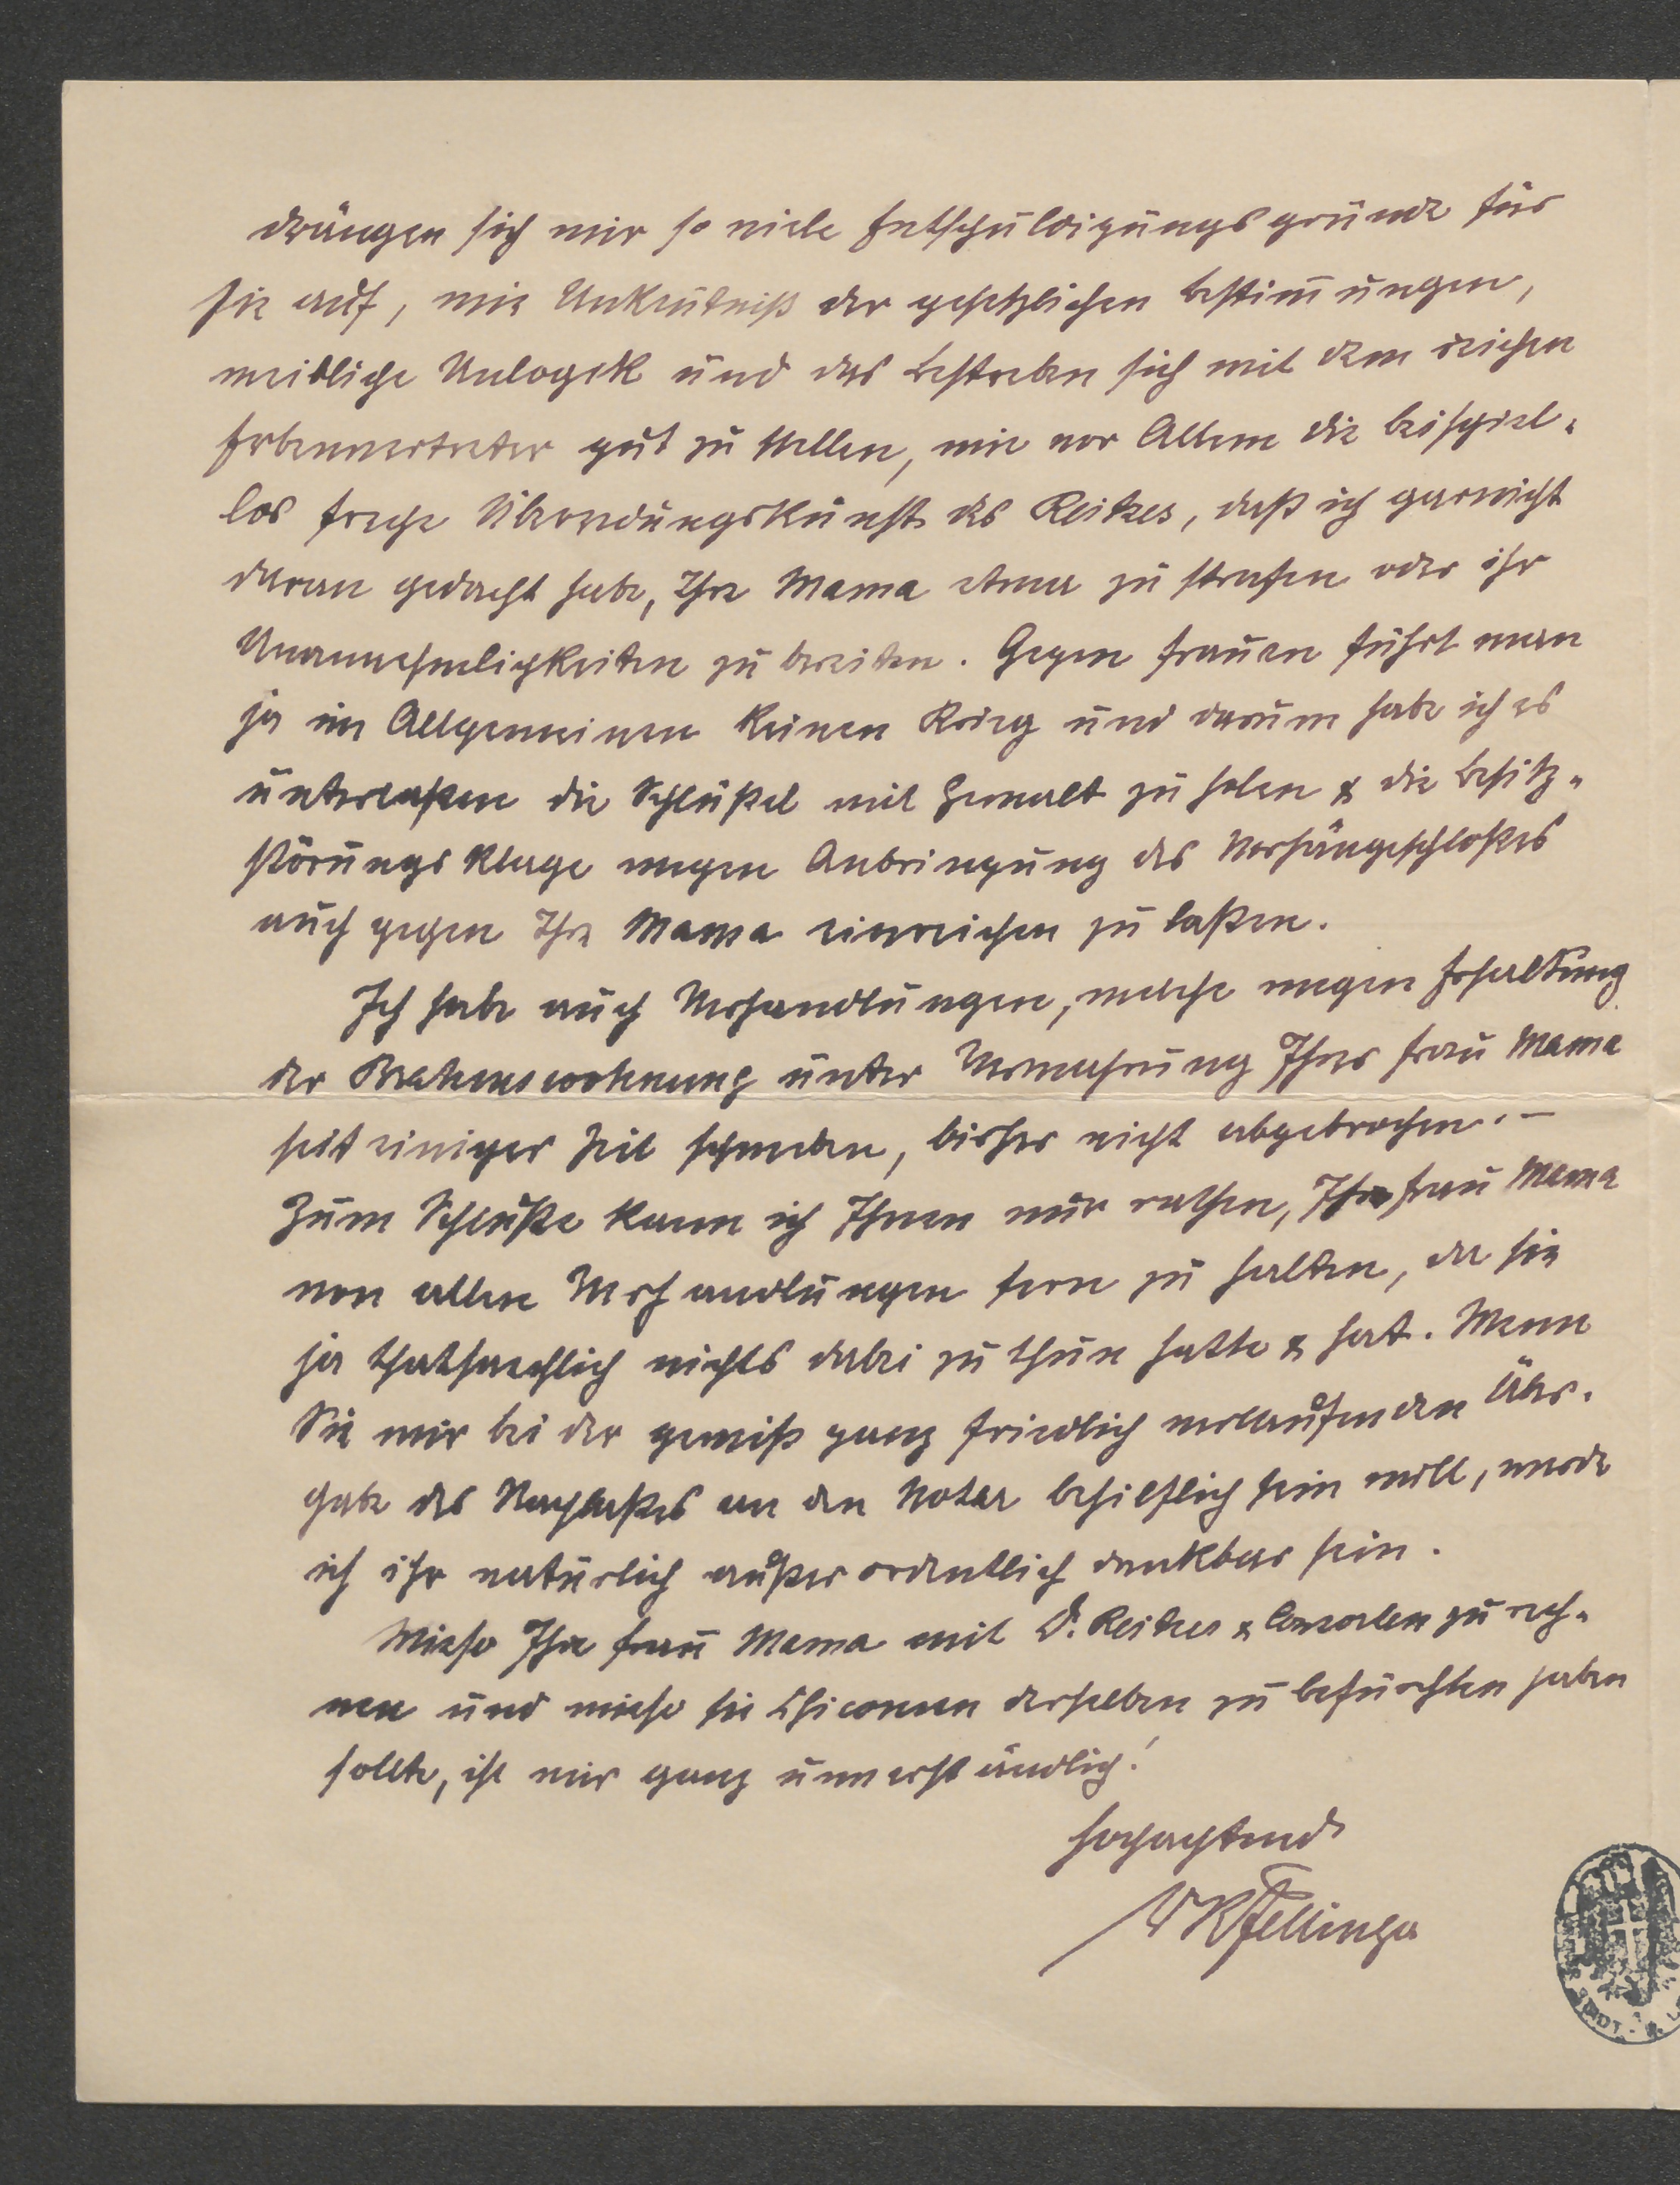 drängen sich mir so viele Entschuldigungsgründe für
sie auf, wie Unkentniß der gesetzlichen Bestim̄ungen,
weibliche Unlogik und das Bestreben sich mit dem reichen
Erbenvertreter gut zu stellen, wie vor Allem die beispiel-
los freche Überredungskunst des Reitzes, daß ich garnicht
daran gedacht habe, Ihre Mama etwa zu strafen oder ihr
Unannehmlichkeiten zu bereiten. Gegen Frauen führt man
ja im Allgemeinen keinen Krieg und darum habe ich es
unterlaßen die Schlüßel mit Gewalt zu holen & die Besitz-
störungsklage wegen Anbringung des Vorhängeschloßes
auch gegen Ihre Mama einreichen zu laßen.
Ich habe auch Verhandlungen, welche wegen Erhaltung
der Brahmswohnung unter Verwahrung Ihrer Frau Mama
seit einiger Zeit schweben, bisher nicht abgebrochen. –
Zum Schluße kann ich Ihnen nur rathen, Ihre Frau Mama
von allen Verhandlungen fern zu halten, da sie
ja thatsaechlich nichts dabei zu thun hatte & hat. Wenn
Sie mir bei der gewiß ganz friedlich verlaufenden Über-
gabe des Nachlaßes an den Notar behilflich sein will, werde
ich ihr natürlich außerordentlich dankbar sein.
Wieso Ihre Frau Mama mit Dr. Reitzes & Consorten zu rech-
nen und wieso sie Chicanen derselben zu befürchten haben
sollte, ist mir ganz unverständlich!
Hochachtend
Fellinger
STADT